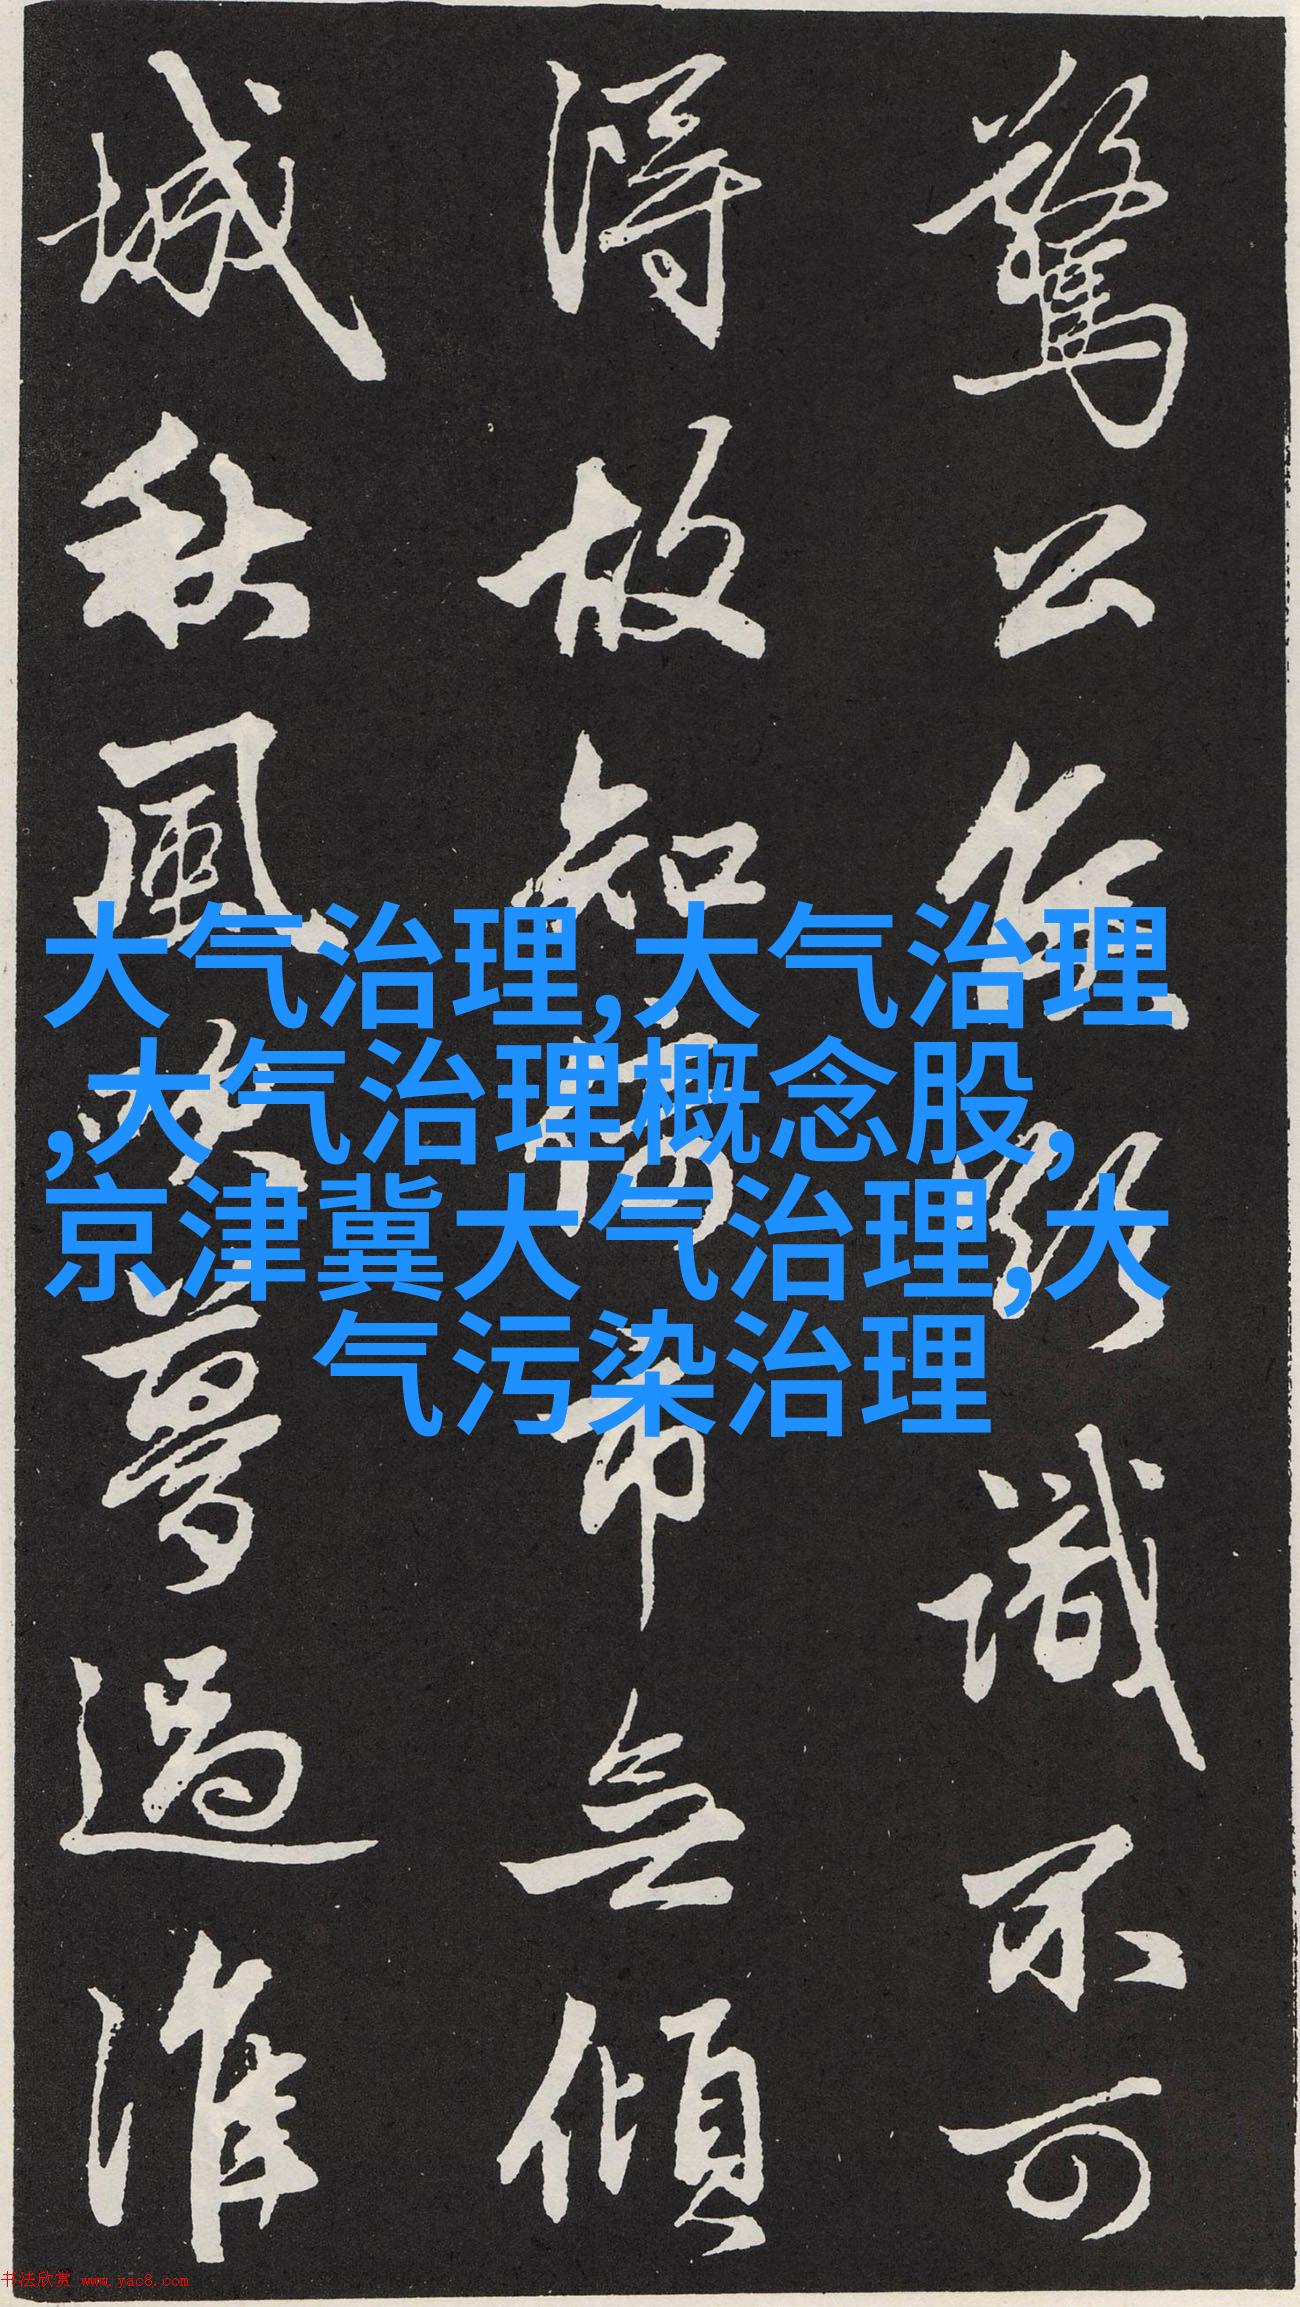 驚公識不可
得故知市無傾
城秋風吹夢過淮
大气治理,大气治理
,大气治理概念股,
京津冀大气治理,大
气污染治理
书法欣赏 www.yac8.com